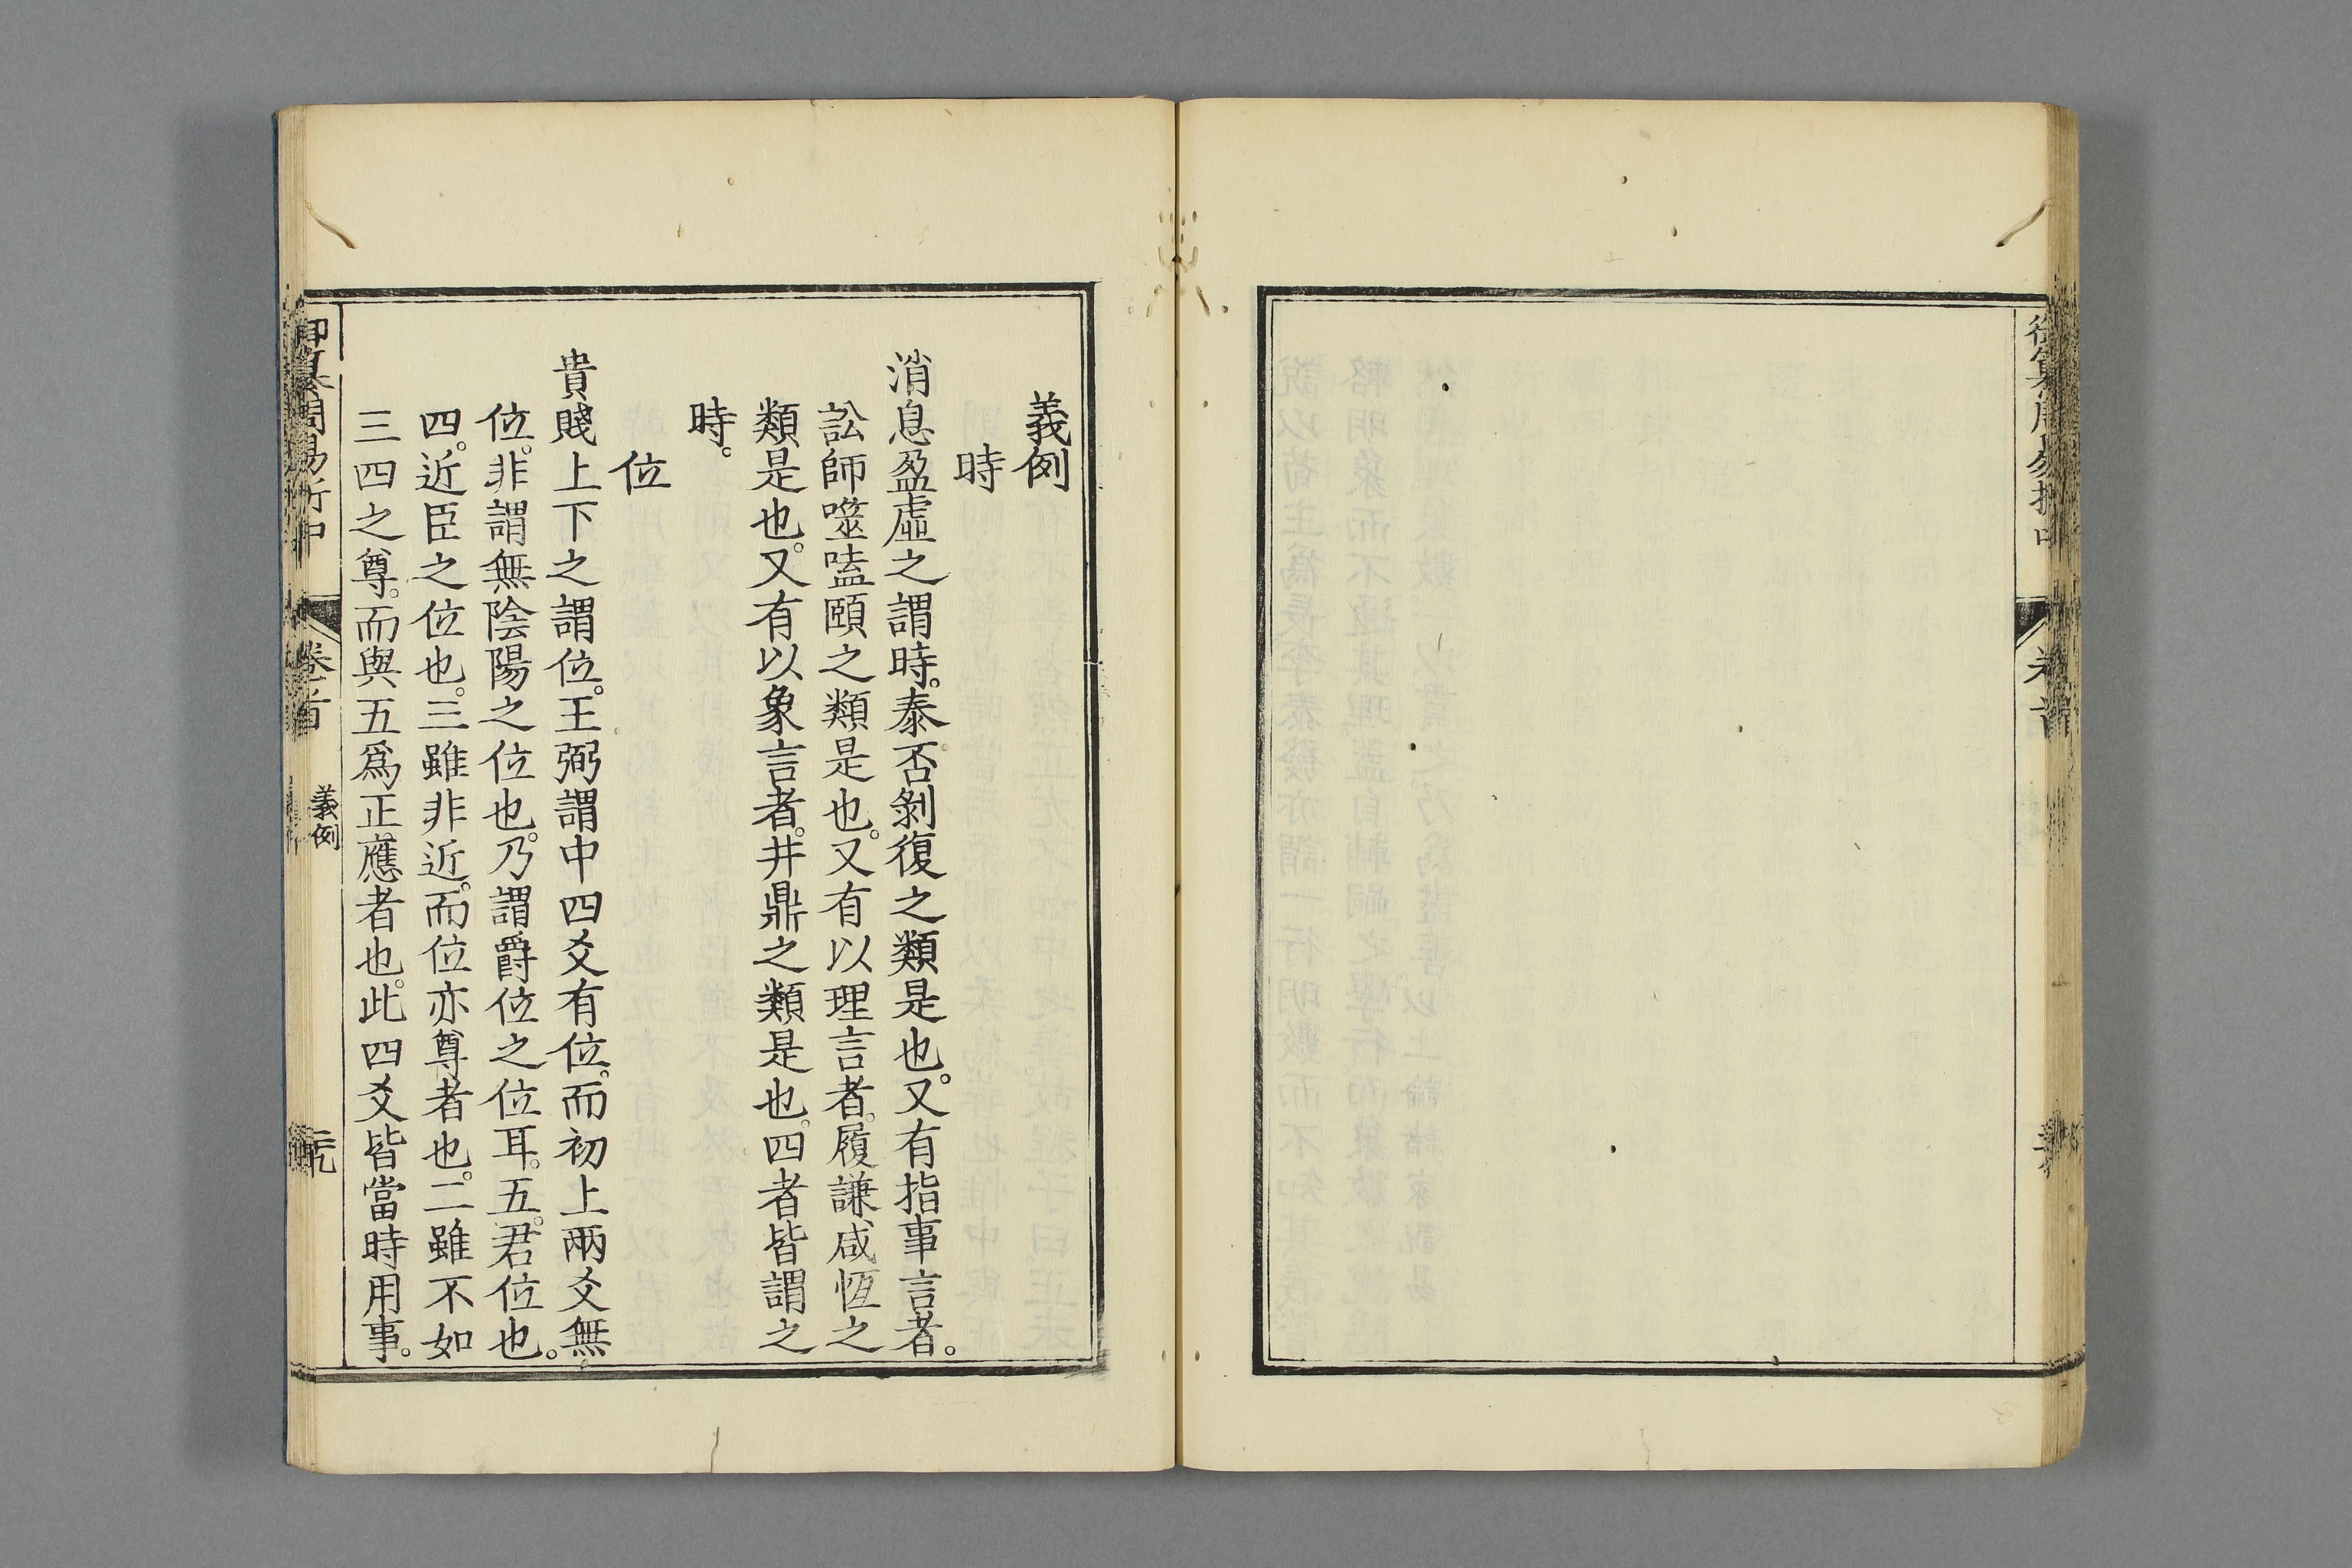 卷首
義例
時
消息盈虛之謂時。泰否剝復之類是也。又有指事言者。
訟師噬嗑頤之類是也。又有以理言者。履謙咸恆之
類是也。又有以象言者。井鼎之類是也。四者皆謂之
時。
位
貴賤上下之謂位。王弼謂中四爻有位。而初上兩爻無
位。非謂無陰陽之位也。乃謂爵位之位耳。五。君位也。
四。近臣之位也。三雖非近。而位亦尊者也。二雖不如
三四之尊。而與五爲正應者也。此四爻皆當時用事。
御纂周易折中
卷首
義例